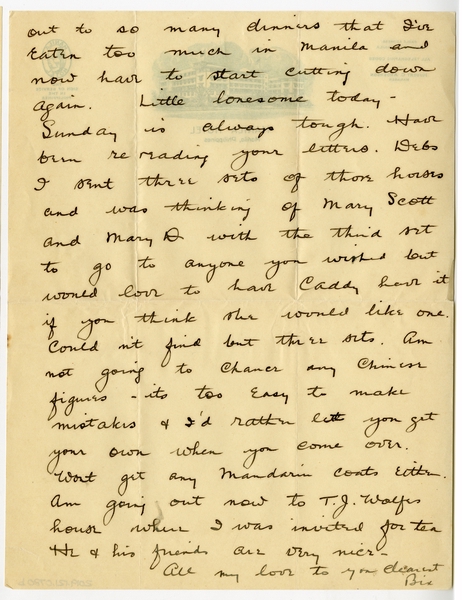 out to so many dinners that I've
Eaten too much in Manila and
now have to start cutting down
again. Little lonesome today -
Sunday is always tough. Have
been re reading your letters. Debs
I sent three sets of those horses
and was thinking of Mary Scott
and Mary D with the third set
to go to anyone you wished but
would love to have Caddy have it
if you think she would like one.
Could n't find but three sets. Am
not going to chance any Chinese
figures - its too Easy to make
mistakes & I'd rather let you get
your own when you come over.
Wont get any Mandarin coats Either.
Am going out now to T.J. Wolfes
house where I was invited for tea
He & his friends are very nice -
All my love to you dearest
Bix